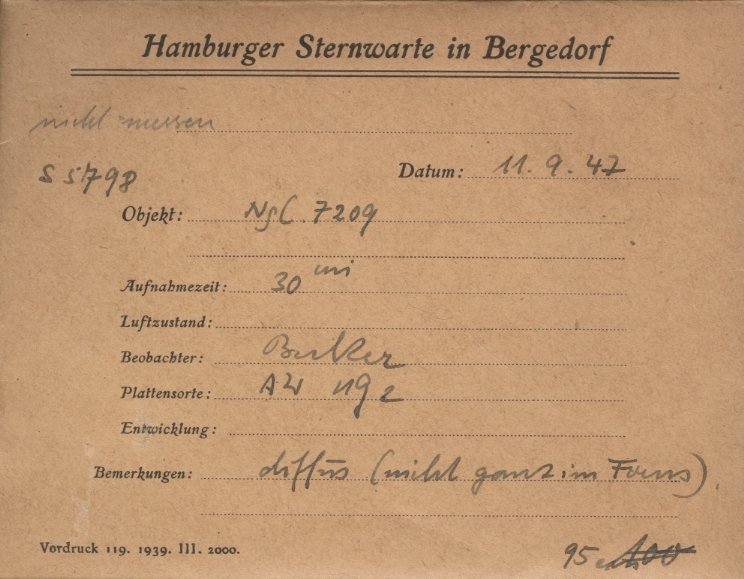 Hamburger Sternwarte in Bergedorf
nicht messen
S 5798
Datum: 11. 9. 47
Objekt: NGC 7209
Aufnahmezeit: 30 min
Luftzustand:
Beobachter: Becker
Plattensorte:
Entwicklung:
Bemerkungen: diffus (nicht ganz im Focus)
Vordruck 119. 1939. III. 2000.
95 100